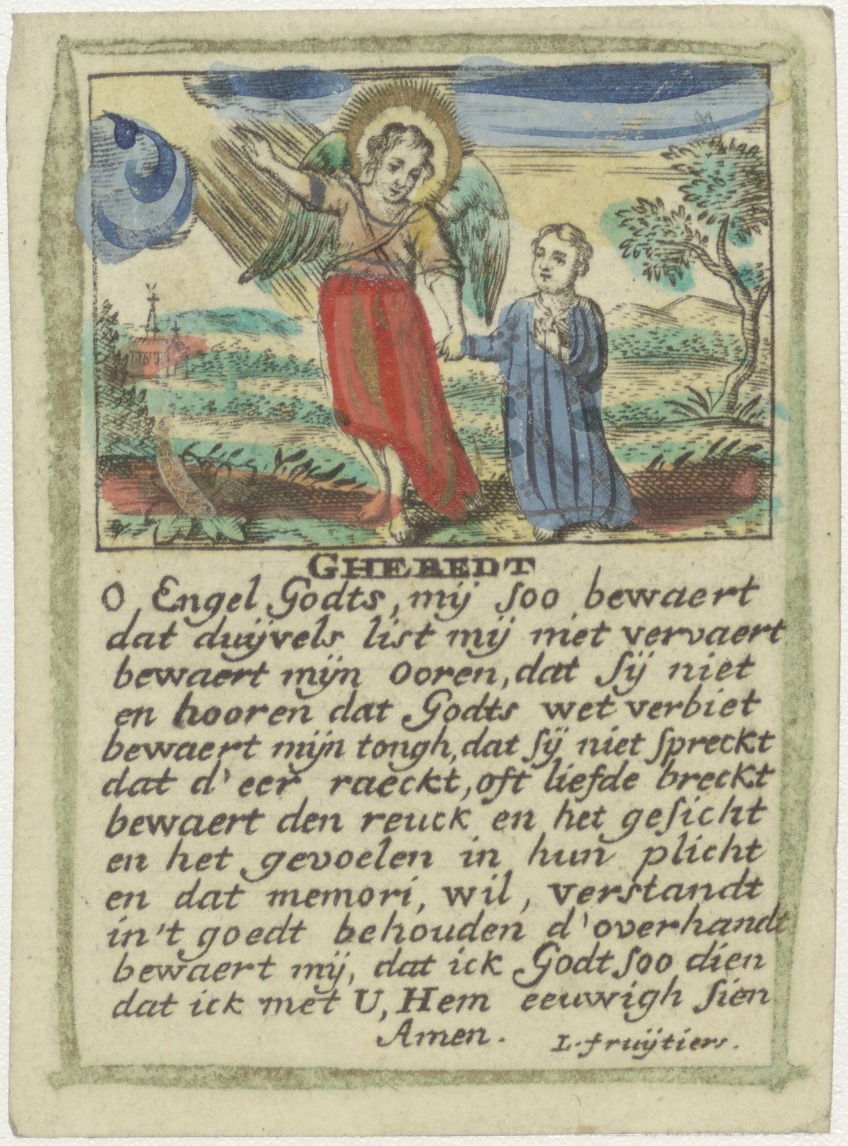 GHEBEDT
O Engel Godts, mij soo bewaert
dat duijvels list mij niet vervaert
bewaert mijn ooren, dat sij niet
en hooren dat Godts wet verbiet
bewaert mijn tongh, dat sij niet spreckt
dat d'eer raeckt, oft liefde breckt
bewaert den reuck en het gesicht
en het gevoelen in hun plicht
en dat memori, wil, verstandt
in't goedt behouden d'overhandt
bewaert mij, dat ick Godt soo dien
dat ick met U, Hem eeuwigh sien
Amen.
L. fruijtiers.